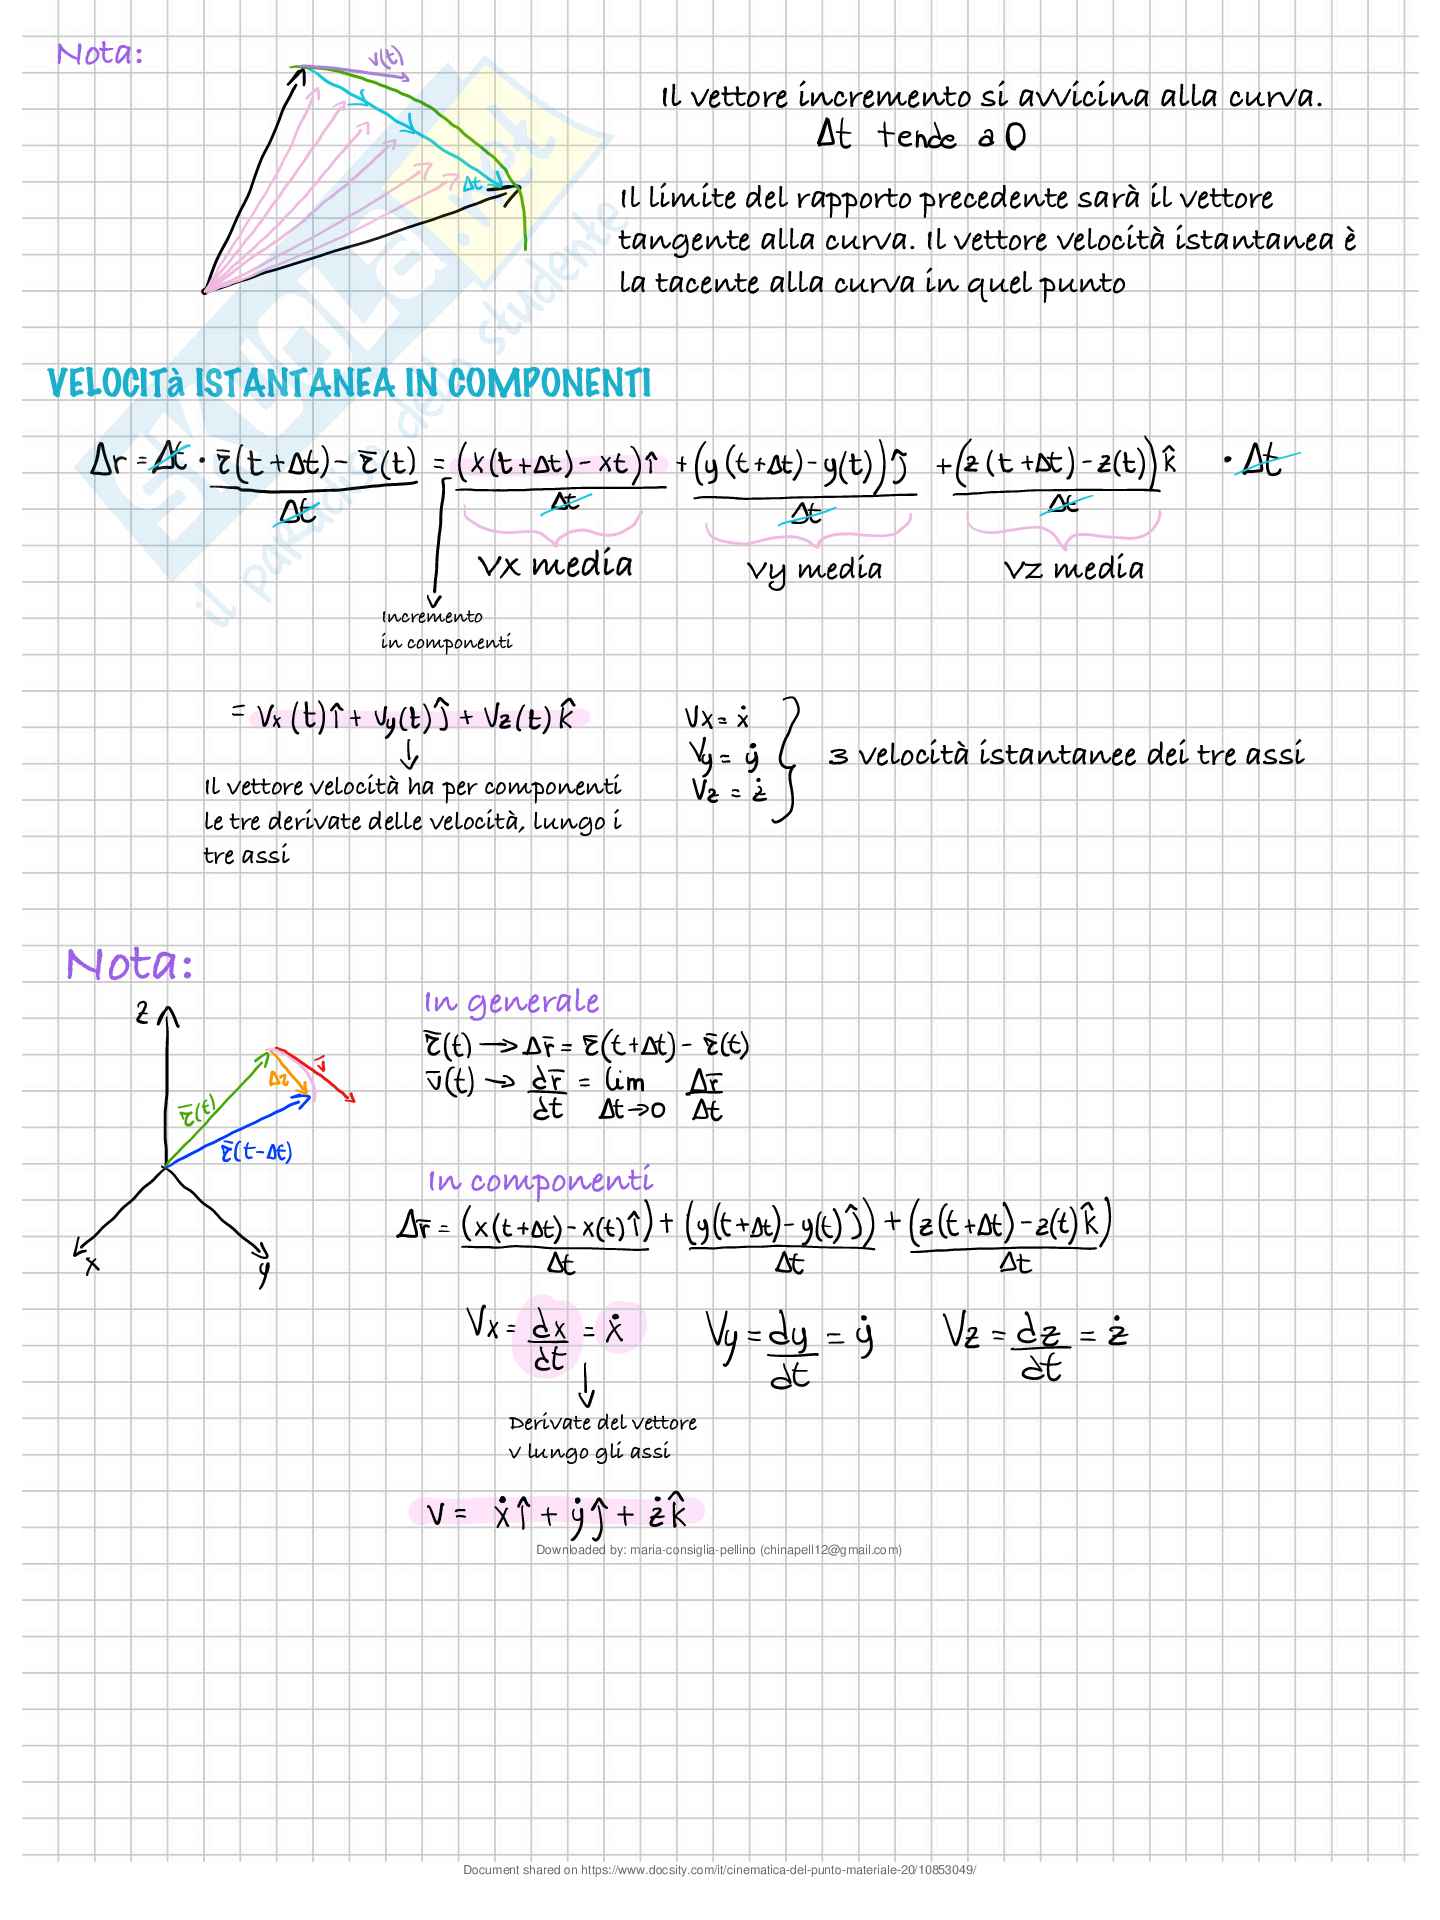 Nota:
v(t)
Δt
Il vettore incremento si avvicina alla curva.
Δt tende a 0
Il limite del rapporto precedente sarà il vettore
tangente alla curva. Il vettore velocità istantanea è
la tacente alla curva in quel punto
SKUOLA.net
il paradiso dello studente
VELOCITà ISTANTANEA IN COMPONENTI
Δr = Δt · r̄(t+Δt) - r̄(t) / Δt = (x(t+Δt) - xt) î / Δt + (y(t+Δt) - y(t)) ĵ / Δt + (z(t+Δt) - z(t)) k̂ / Δt · Δt
vx media vy media vz media
Incremento
in componenti
= Vx(t) î + Vy(t) ĵ + Vz(t) k̂
Il vettore velocità ha per componenti
le tre derivate delle velocità, lungo i
tre assi
Vx = ẋ
Vy = ẏ
Vz = ż
3 velocità istantanee dei tre assi
Nota:
z
r̄(t)
Δr
v̄
r̄(t-Δt)
x
y
In generale
r̄(t) → Δr̄ = r̄(t+Δt) - r̄(t)
v̄(t) → dr̄/dt = lim Δt→0 Δr̄/Δt
In componenti
Δr̄ = (x(t+Δt) - x(t) î) / Δt + (y(t+Δt) - y(t) ĵ) / Δt + (z(t+Δt) - z(t) k̂) / Δt
Vx = dx/dt = ẋ Vy = dy/dt = ẏ Vz = dz/dt = ż
Derivate del vettore
v lungo gli assi
v = ẋ î + ẏ ĵ + ż k̂
Downloaded by: maria-consiglia-pellino (chinapell12@gmail.com)
Document shared on https://www.docsity.com/it/cinematica-del-punto-materiale-20/10853049/